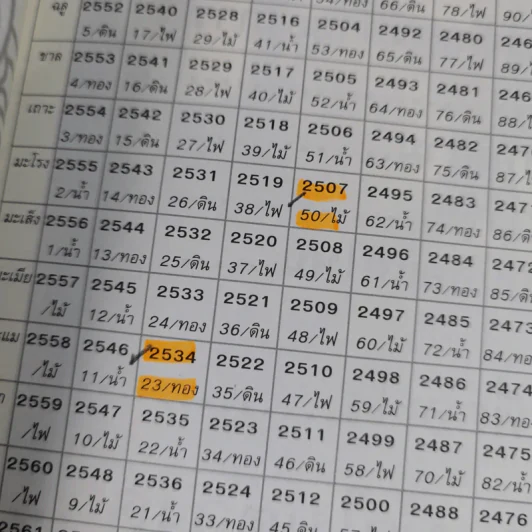 ฉลู 2552 2540 2528 2516 2504 2492 2480
5/ดิน 17/ไฟ 29/ไม้ 41/น้ำ 53/ทอง 65/ดิน 77/ไฟ
ขาล 2553 2541 2529 2517 2505 2493 2481
4/ทอง 16/ดิน 28/ไฟ 40/ไม้ 52/น้ำ 64/ทอง 76/ดิน
เถาะ 2554 2542 2530 2518 2506 2494 2482
3/ทอง 15/ดิน 27/ไฟ 39/ไม้ 51/น้ำ 63/ทอง 75/ดิน
มะโรง 2555 2543 2531 2519 2507 2495 2483
2/น้ำ 14/ทอง 26/ดิน 38/ไฟ 50/ไม้ 62/น้ำ 74/ทอง
มะเส็ง 2556 2544 2532 2520 2508 2496 2484
1/น้ำ 13/ทอง 25/ดิน 37/ไฟ 49/ไม้ 61/น้ำ 73/ทอง
ะเมีย 2557 2545 2533 2521 2509 2497 2485
/ไม้ 12/น้ำ 24/ทอง 36/ดิน 48/ไฟ 60/ไม้ 72/น้ำ
แม 2558 2546 2534 2522 2510 2498 2486 2474
/ไม้ 11/น้ำ 23/ทอง 35/ดิน 47/ไฟ 59/ไม้ 71/น้ำ 83/ทอง
2559 2547 2535 2523 2511 2499 2487 2475
/ไฟ 10/ไม้ 22/น้ำ 34/ทอง 46/ดิน 58/ไฟ 70/ไม้ 82/น้ำ
2560 2548 2536 2524 2512 2500 2488 2476
/ไฟ 9/ไม้ 21/น้ำ 33/ทอง 45/ดิน